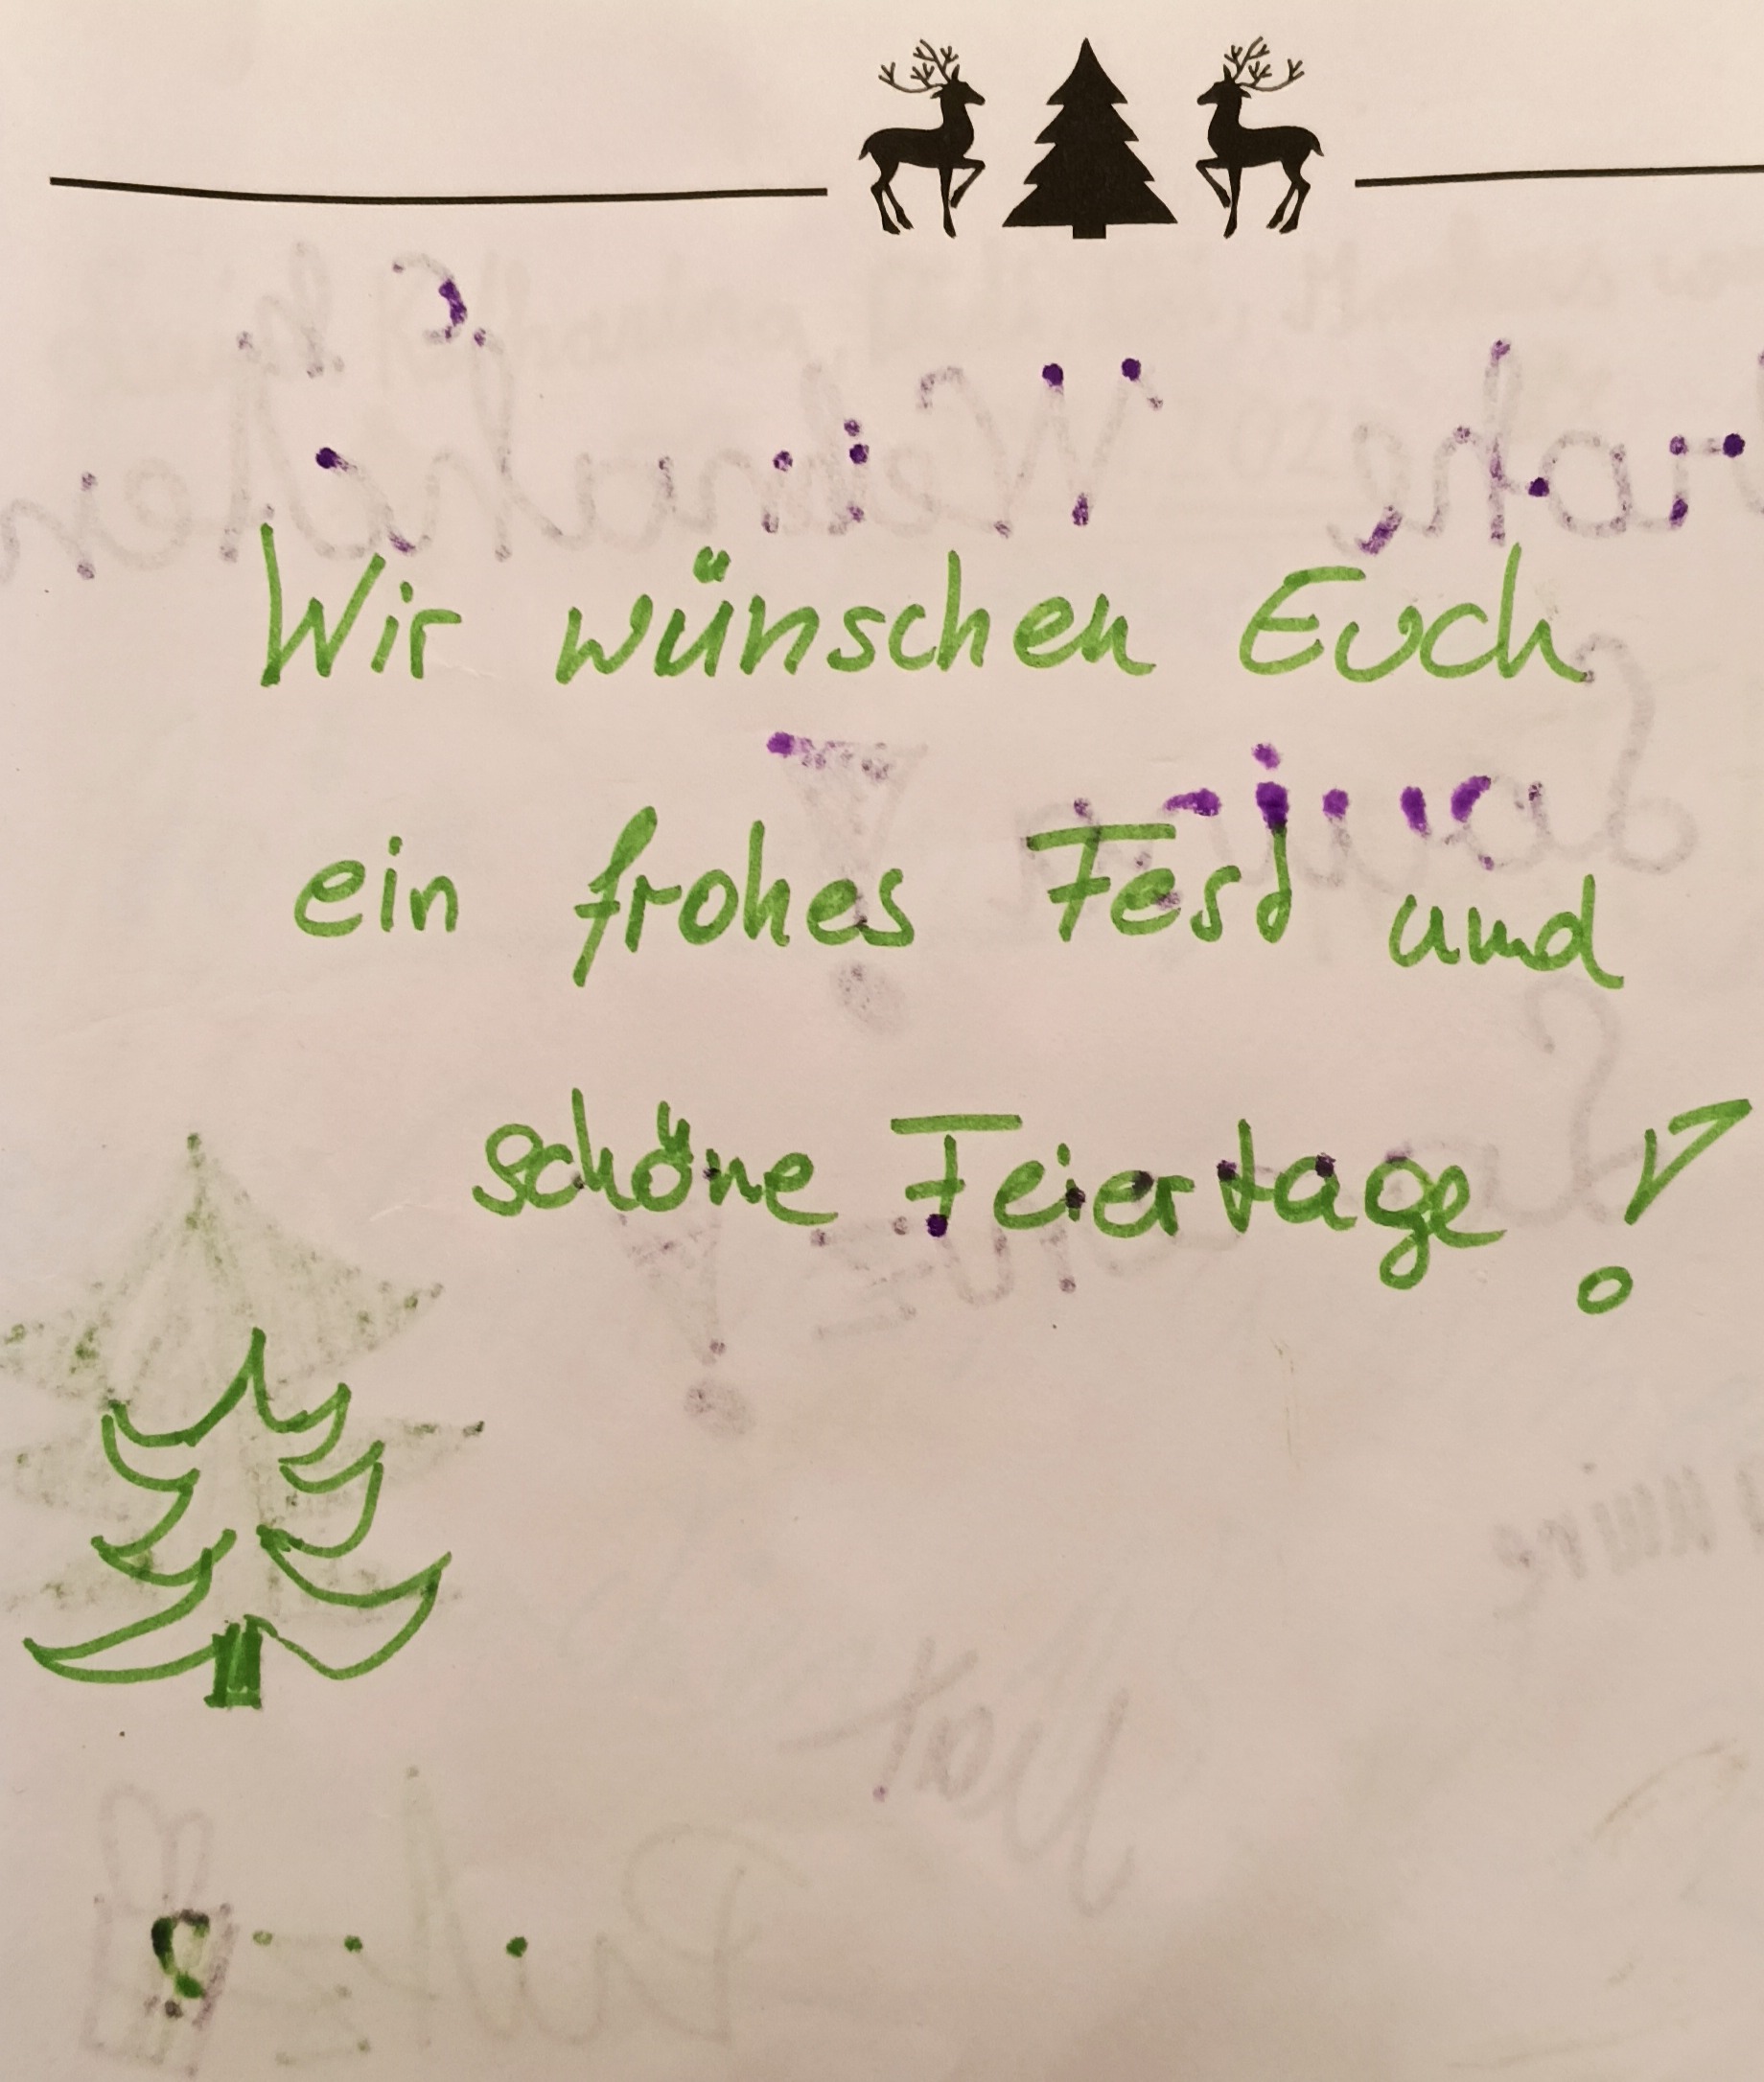 Wir wünschen Euch
ein frohes Fest und
schöne Feiertage!